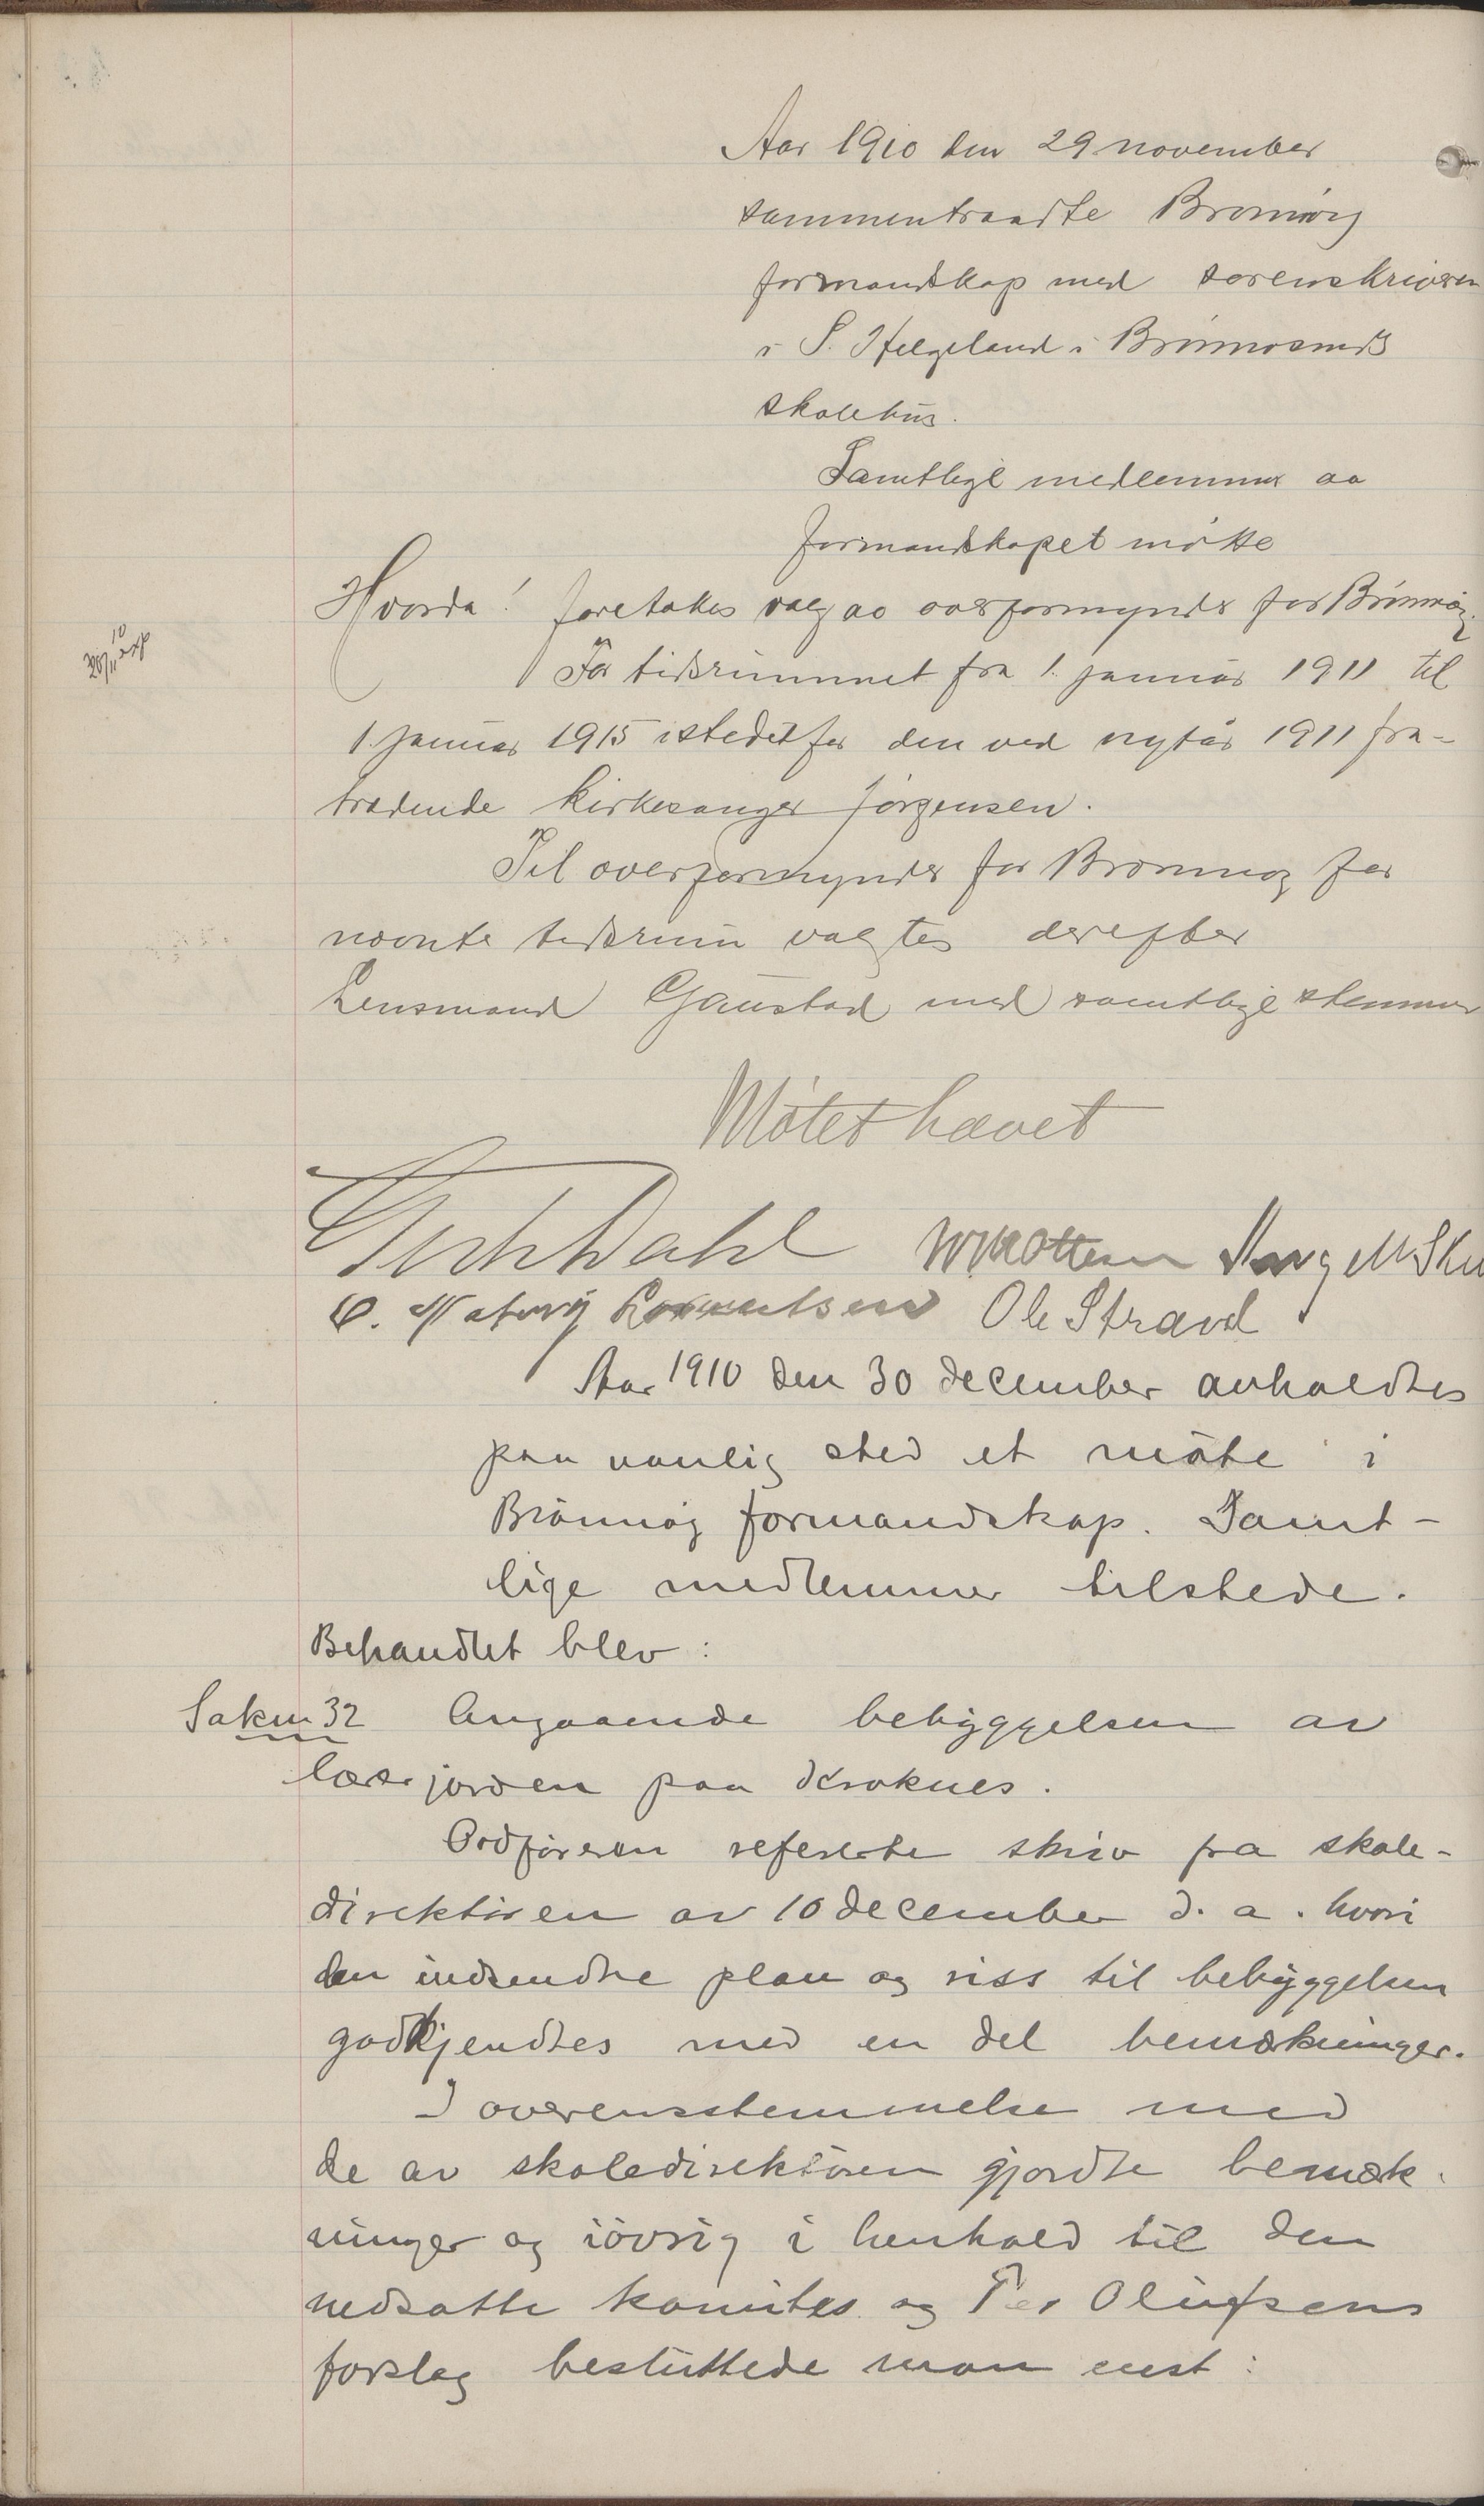 Aar 1910 den 29 november
sammentraadte Brønnøy
formandskap med sorenskriveren
i S. Helgeland i Brønnøsunds
skolehus.
Samtlige medlemmer av
formandskapet møtte
Hvorda! foretokes valg av overformynder for Brønnøy.
For tidsrummet fra 1. januar 1911 til
1. januar 1915 istedetfor den ved nytår 1911 fra-
trædende kirkesanger Jørgensen.
Til overformynder for Brønnøy for
nævnte tidsrum valgtes derefter
Lensmand Gaustad med samtlige stemmer
Møtet hævet
Dahl
Ole Strand
Aar 1910 den 30 december avholdtes
paa vanlig sted et møte i
Brønnøy formandskap. Samt-
lige medlemmer tilstede.
Behandlet blev:
Sak nr 32 Angaaende bebyggelsen av
lærerjorden paa Kroknes.
Ordføreren refererte skriv fra skole-
direktøren av 10 december d. a. hvori
den indsendte plan og riss til bebyggelsen
godkjendtes med en del bemærkninger.
I overensstemmelse med
de av skoledirektøren gjordte bemærk-
ninger og iøvrig i henhold til den
nedsatte komites og Per Olufsens
forslag besluttede man enst: